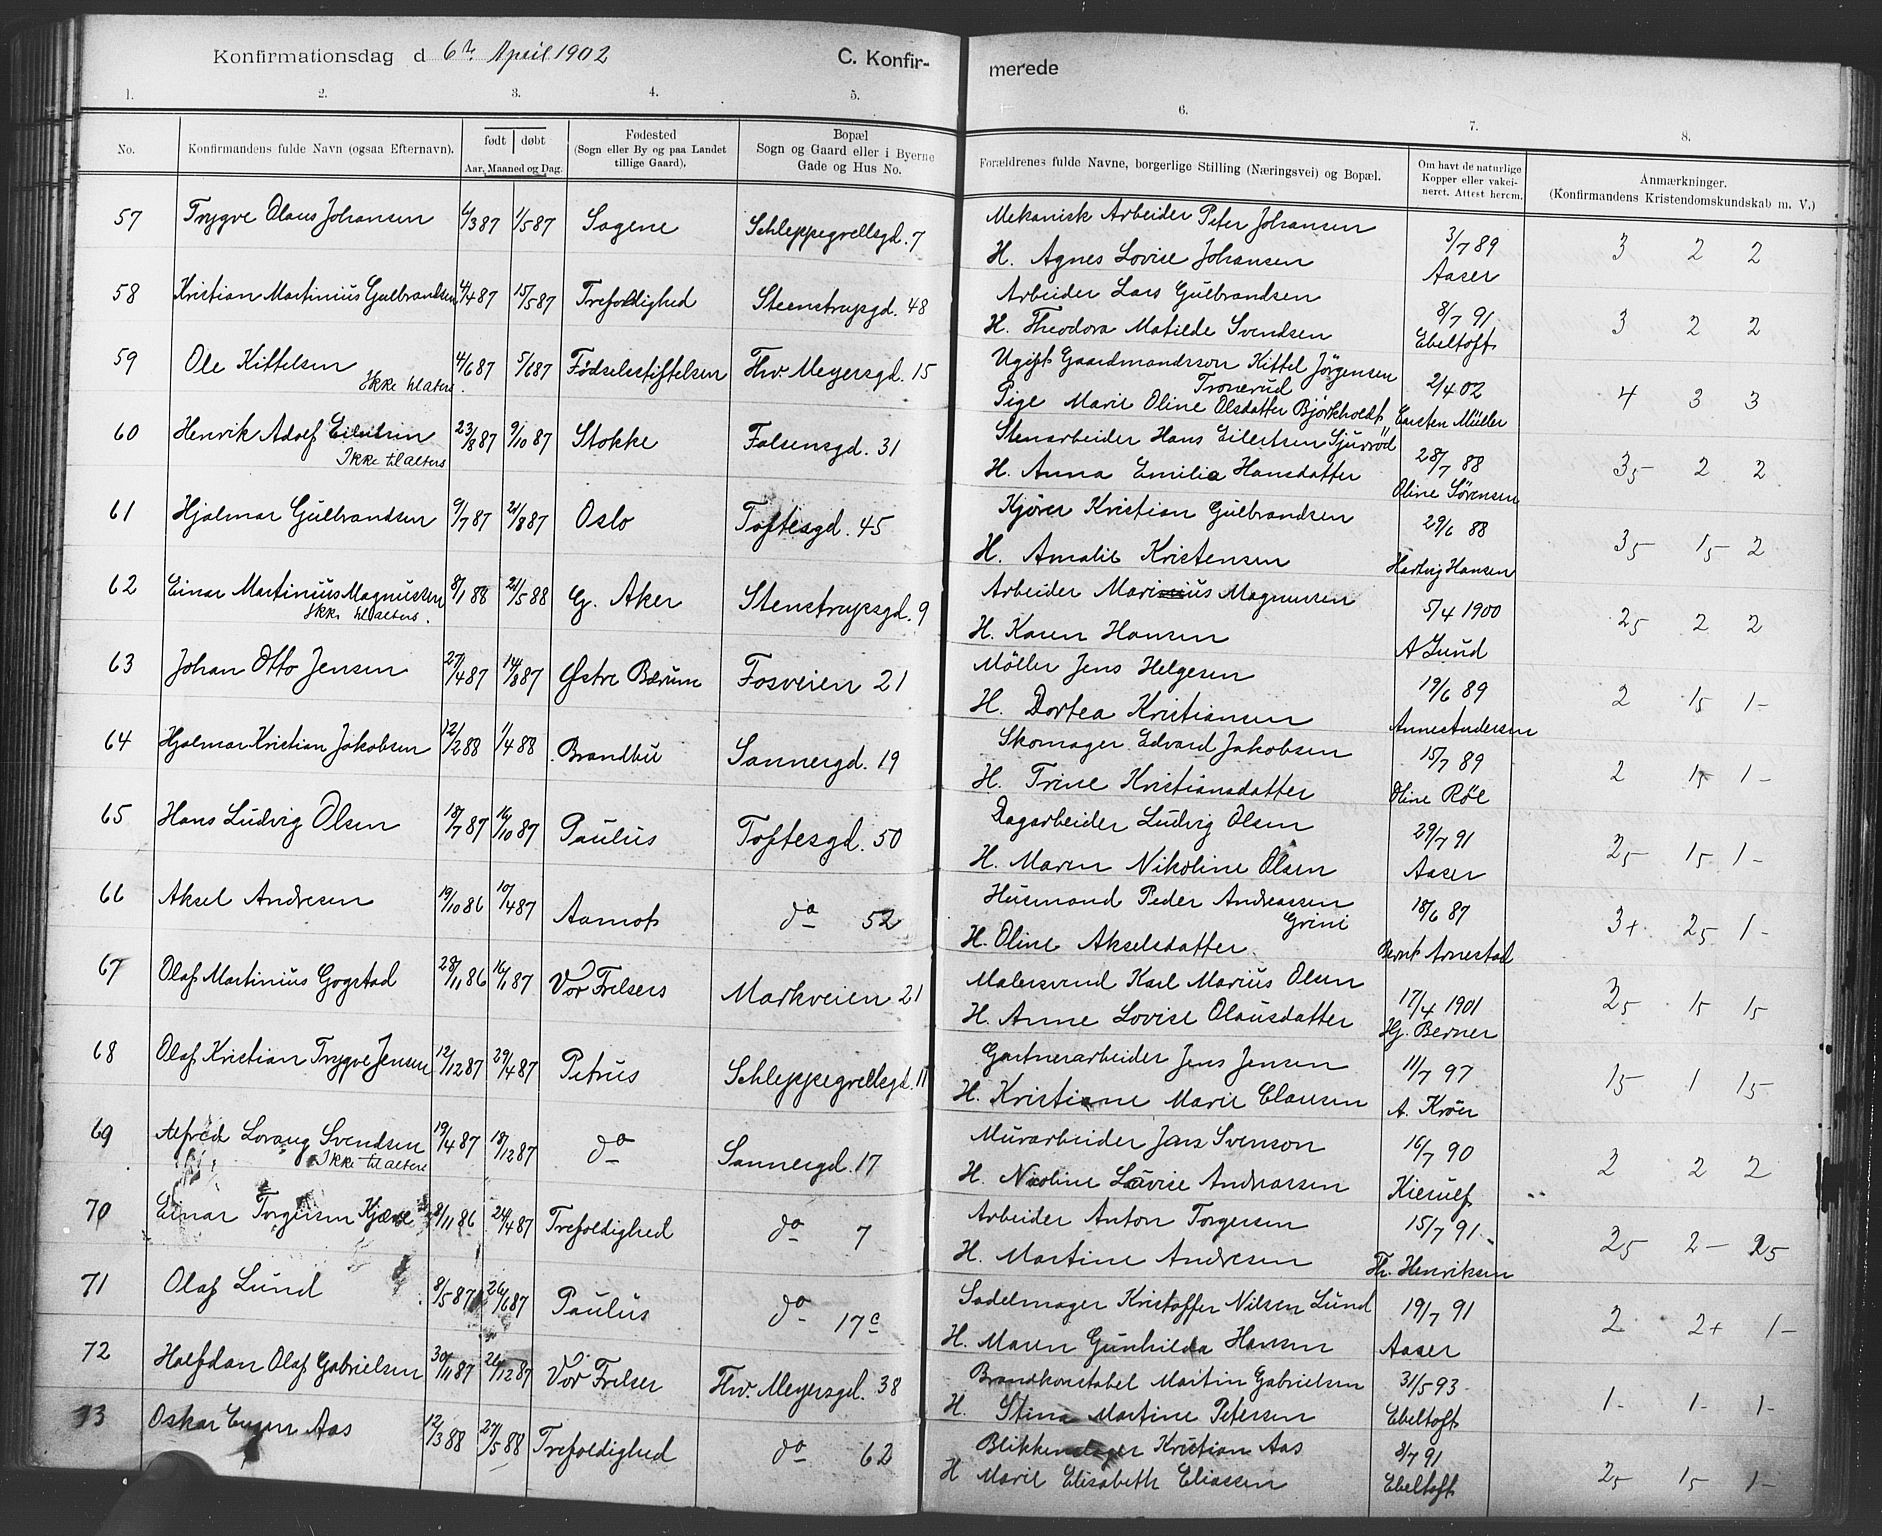 Konfirmationsdag d 6te April 1902 C. Konfir- merede
1. 2. 3. 4. 5. 6. 7. 8.
No. Konfirmandens fulde Navn (ogsaa Efternavn). født døbt Aar, Maaned og Dag. Fødested (Sogn eller By og paa Landet tillige Gaard). Bopæl Sogn og Gaard eller i Byerne Gade og Hus No. Forældrenes fulde Navne, borgerlige Stilling (Næringsvei) og Bopæl. Om havt de naturlige Kopper eller vakcineret. Attest herom. Anmærkninger. (Konfirmandens Kristendomskundskab m. V.)
57 Trygve Olaus Johansen 4/3 87 1/5 87 Sagene Schleppegrellsgd. 7 Mekanisk Arbeider Peter Johansen 3/7 89 3 2 2
H. Agnes Lovise Johansen Aaser
58 Kristian Martinius Gulbrandsen 4/4 87 15/5 87 Trefoldighed Steenstrupsgd. 48 Arbeider Lars Gulbrandsen 8/7 91 3 2 2
H. Theodora Matilde Svendsen Ebeltoft
59 Ole Kittelsen 4/6 87 5/6 87 Fødselsstiftelsen Thv. Meyersgd. 15 Ugift Gaardmandssøn Kittel Jørgensen 2/4 02 4 3 3
Ikke til alters. Tronerud
Pige Marie Oline Olsdatter Bjørkholdt Carsten Müller
60 Henrik Adolf Eilertsen 23/8 87 9/10 87 Stokke Falsensgd. 31 Stenarbeider Hans Eilertsen Sjurrød 28/7 88 35 2 2
Ikke til alters H. Anna Emilia Hansdatter Oline Sørensen
61 Hjalmar Gulbrandsen 9/7 87 21/8 87 Oslo Toftesgd. 45 Kjører Kristian Gulbrandsen 29/6 88 35 15 2
H. Amalie Kristensen Hartvig Hansen
62 Einar Martinius Magnussen 8/1 88 21/5 88 G. Aker Stenstrupsgd. 9 Arbeider Marinius Magnussen 5/4 1900 25 2 2
Ikke til alters. H. Karen Hansen A Lund
63 Johan Otto Jensen 27/4 87 14/8 87 Østre Bærum Fosveien 21 Møller Jens Helgesen 19/6 89 2 15 1-
H. Dortea Kristiansen Anne Andersen
64 Hjalmar Kristian Jakobsen 12/2 88 1/4 88 Brandbu Sannergd. 19 Skomager Edvard Jakobsen 15/7 89 2 1+ 1-
H. Trine Kristiansdatter Oline Røe
65 Hans Ludvig Olsen 18/7 87 16/10 87 Paulus Toftesgd. 50 Dagarbeider Ludvig Olsen 29/7 91 25 15 1-
H. Maren Nikoline Olsen Aaser
66 Aksel Andresen 19/10 86 10/4 87 Aamot do 52 Husmand Peder Andreassen 18/6 87 3+ 25 1-
Grini
H. Oline Akselsdatter Bernt Arnestad
67 Olaf Martinius Gogstad 28/11 86 16/1 87 Vor Frelsers Markveien 21 Malersvend Karl Marius Olsen 17/4 1901 35 15 15
H. Anne Lovise Olausdatter Hj. Berner
68 Olaf Kristian Trygve Jensen 12/12 87 29/4 87 Petrus Schleppegrellsgd. 11 Gartnerarbeider Jens Jensen 11/7 97 15 1 15
H. Kristiane Marie Clausen A. Krøer
69 Alfred Lorang Svendsen 19/4 87 18/12 87 do Sannergd. 17 Murarbeider Jens Svenson 16/7 90 2 2 2
Ikke til alters H. Nicoline Lovise Andreassen Kierulf
70 Einar Torgersen Kjær 8/11 86 24/4 87 Trefoldighed do 7 Arbeider Anton Torgersen 15/7 91 25 2- 25
H. Martine Andresen Th. Henriksen
71 Olaf Lund 8/5 87 26/6 87 Paulus do 17c Sadelmager Kristoffer Nilsen Lund 19/7 91 2 2+ 1-
H. Maren Gunhilda Hansen Aaser
72 Halfdan Olaf Gabrielsen 30/11 87 26/12 87 Vor Frelser Thv. Meyersgd. 38 Brandkonstabel Martin Gabrielsen 31/5 93 1- 1- 1-
H. Stina Martine Petersen Ebeltoft
73 Oskar Eugen Aas 12/3 88 27/5 88 Trefoldighed do 62 Blikkenslager Kristian Aas 8/7 91 25 15 1-
H Marie Elisabeth Eliassen Ebeltoft